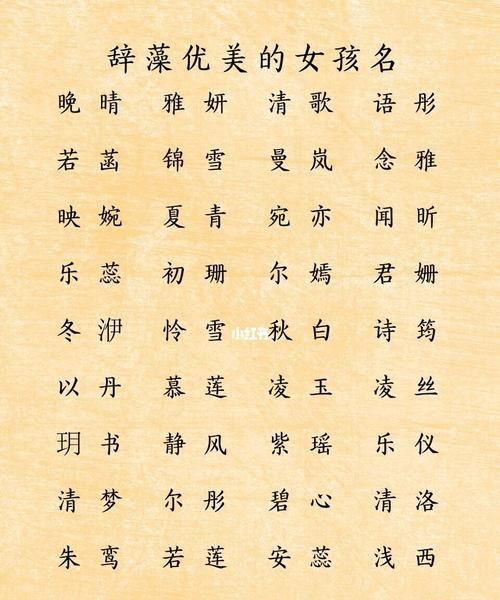 辞藻优美的女孩名
晚晴 雅妍 清歌 语彤
若菡 锦雪 曼岚 念雅
映婉 夏青 宛亦 闻昕
乐蕊 初珊 尔嫣 君姗
冬洢 怜雪 秋白 诗筠
小红书
以丹 慕莲 凌玉 凌丝
玥书 静风 紫瑶 乐仪
清梦 尔彤 碧心 清洛
朱鸾 若莲 安蕊 浅西